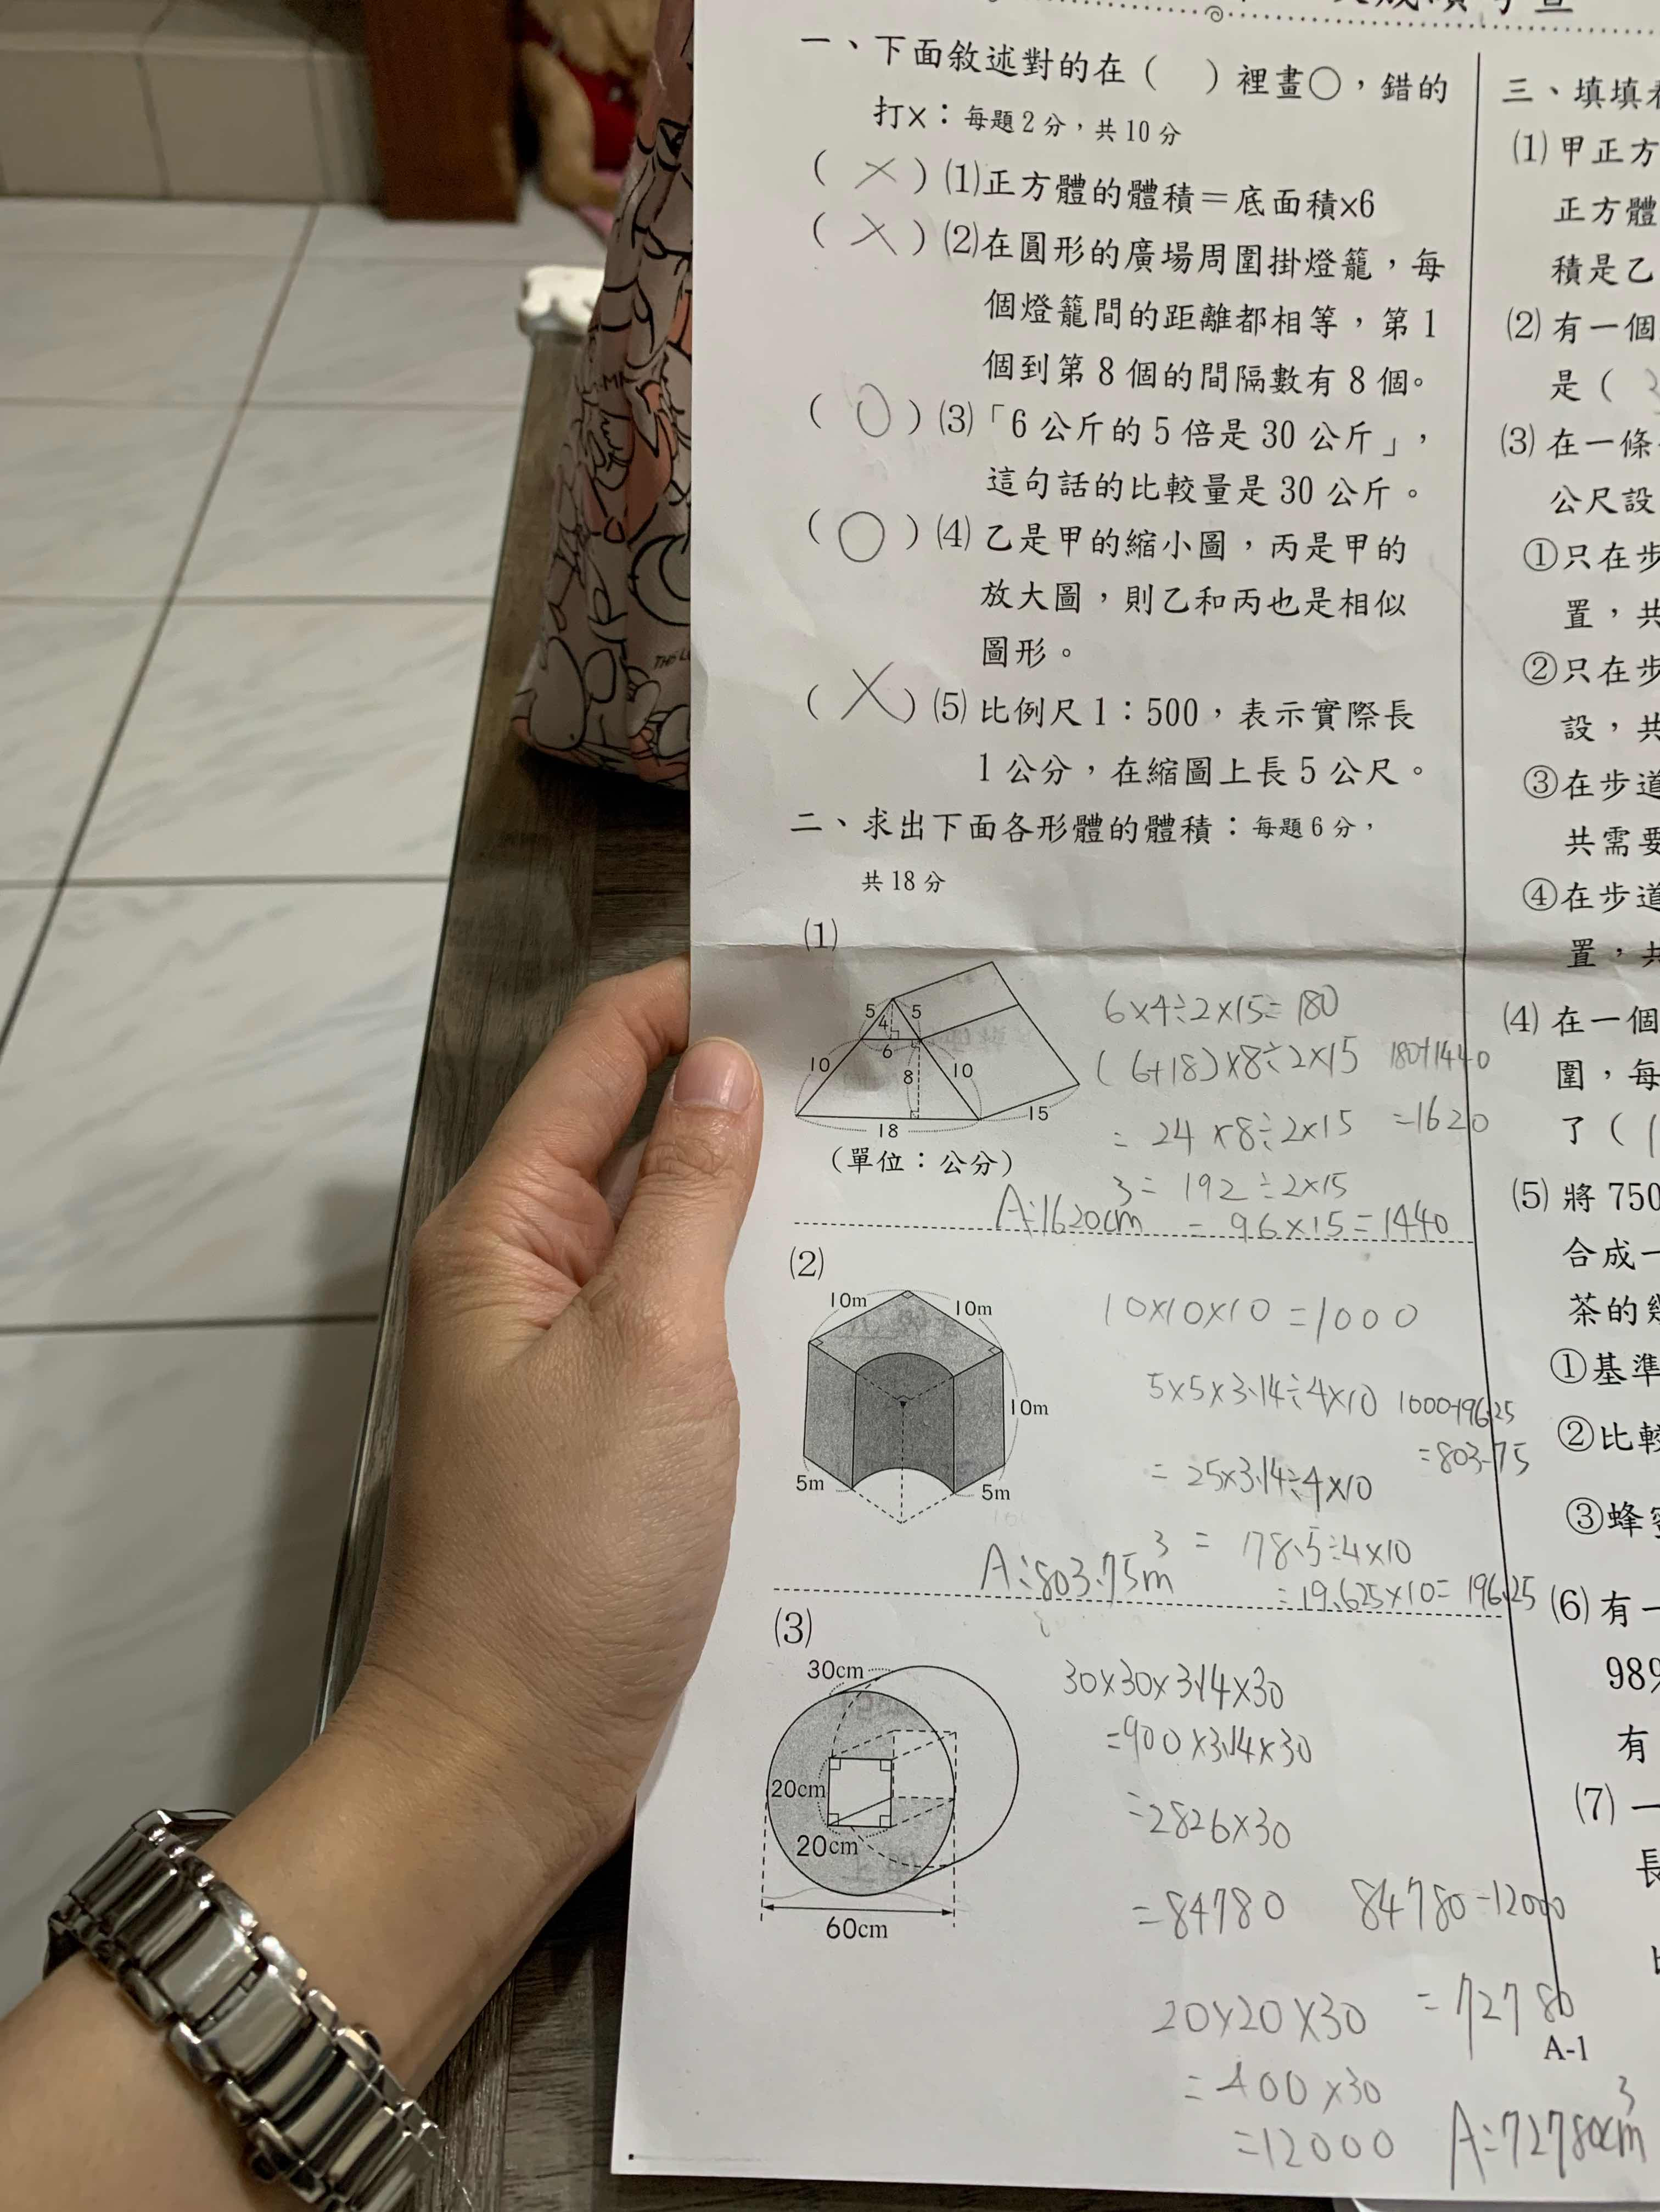 一、下面敘述對的在（　）裡畫○，錯的
打×：每題2分，共10分
（ × ）⑴正方體的體積＝底面積×6
（ × ）⑵在圓形的廣場周圍掛燈籠，每
個燈籠間的距離都相等，第1
個到第8個的間隔數有8個。
（ ○ ）⑶「6公斤的5倍是30公斤」，
這句話的比較量是30公斤。
（ ○ ）⑷乙是甲的縮小圖，丙是甲的
放大圖，則乙和丙也是相似
圖形。
（ × ）⑸比例尺1：500，表示實際長
1公分，在縮圖上長5公尺。
二、求出下面各形體的體積：每題6分，
共18分
⑴
5 5
4
6
10 8 10
15
18
（單位：公分）
6×4÷2×15=180
(6+18)×8÷2×15 180+1440
= 24×8÷2×15 =1620
= 192÷2×15
= 96×15=1440
A:1620cm³
⑵
10m 10m
10m
5m 5m
10×10×10=1000
5×5×3.14÷4×10 1000-196.25
=803.75
= 25×3.14÷4×10
= 78.5÷4×10
=19.625×10=196.25
A:803.75m³
⑶
30cm
20cm
20cm
60cm
30×30×3.14×30
=900×3.14×30
=2826×30
=84780 84780-12000
=72780
20×20×30
=400×30
=12000
A:72780cm³
A-1
三、填填
⑴甲正方
正方體
積是乙
⑵有一個
是（
⑶在一條
公尺設
①只在步
置，共
②只在步
設，共
③在步道
共需要
④在步道
置，共
⑷在一個
圍，每
了（
⑸將750
合成一
茶的幾
①基準
②比較
③蜂蜜
⑹有一
98%
有
⑺一
長